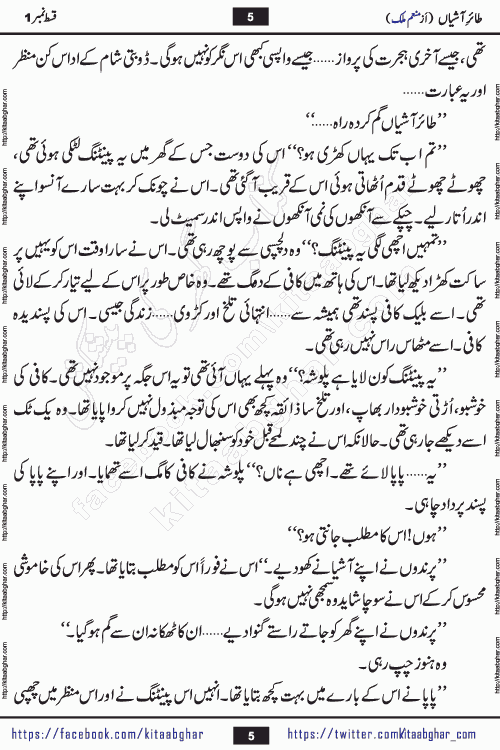 طائر آشیاں (از منعم ملک) 5 قسط نمبر 1
تھی، جیسے آخری ہجرت کی پرواز......جیسے واپسی کبھی اس نگر کو نہیں ہوگی۔ ڈوبتی شام کے اداس کن منظر
اور یہ عبارت......
”طائر آشیاں گم کردہ راہ......“
”تم اب تک یہاں کھڑی ہو؟“ اس کی دوست جس کے گھر میں یہ پینٹنگ لٹکی ہوئی تھی،
چھوٹے چھوٹے قدم اُٹھاتی ہوئی اس کے قریب آ گئی تھی۔ اس نے چونک کر بہت سارے آنسو اپنے
اندر اُتار لیے۔ چپکے سے آنکھوں کی نمی آنکھوں نے واپس اندر سمیٹ لی۔
”تمہیں اچھی لگی یہ پینٹنگ؟“ وہ دلچسپی سے پوچھ رہی تھی۔ اس نے سارا وقت اس کو یہیں پر
ساکت کھڑا دیکھ لیا تھا۔ اس کی ہاتھ میں کافی کے دھگ تھے۔ وہ خاص طور پر اس کے لیے تیار کر کے لائی
تھی۔ اسے بلیک کافی پسند تھی ہمیشہ سے......انتہائی تلخ اور کڑوی......زندگی جیسی۔ اس کی پسندیدہ
کافی۔ اسے مٹھاس راس نہیں رہی تھی۔
”یہ پینٹنگ کون لایا ہے پلوشہ؟“ وہ پہلے یہاں آئی تھی تو یہ اس جگہ پر موجود نہیں تھی۔ کافی کی
خوشبو، اُڑتی خوشبودار بھاپ، اور تلخ سا ذائقہ کچھ بھی اس کی توجہ مبذول نہیں کروا پایا تھا۔ وہ یک ٹک
اسے دیکھے جا رہی تھی۔ حالانکہ اس نے چند لمحے قبل خود کو سنبھال لیا تھا۔ قید کر لیا تھا۔
”یہ......پاپا لائے تھے۔ اچھی ہے ناں؟“ پلوشہ نے کافی کا مگ اسے تھمایا۔ اور اپنے پاپا کی
پسند پر داد چاہی۔
”ہوں! اس کا مطلب جانتی ہو؟“
”پرندوں نے اپنے آشیانے کھو دیے۔“ اس نے فوراً اس کو مطلب بتایا تھا۔ پھر اس کی خاموشی
محسوس کر کے اس نے سوچا شاید وہ سمجھی نہیں ہو گی۔
”پرندوں نے اپنے گھر کو جاتے راستے گنوا دیے......ان کا ٹھکانہ ان سے گم ہو گیا۔“
وہ ہنوز چپ رہی۔
”پاپا نے اس کے بارے میں بہت کچھ بتایا تھا۔ انہیں اس پینٹنگ نے اور اس منظر میں چھپی
https://facebook.com/kitaabghar 5 https://twitter.com/kitaabghar_com